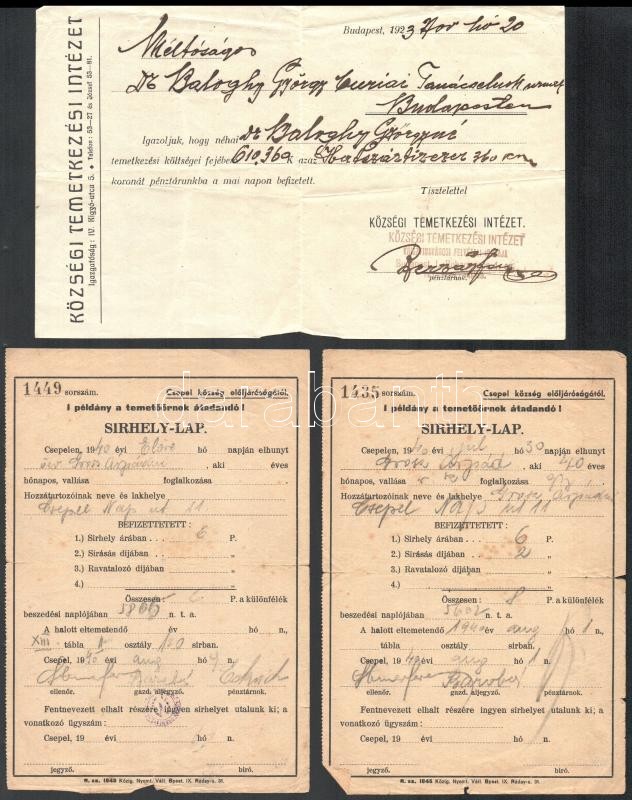 KÖZSÉGI TEMETKEZÉSI INTÉZET
Igazgatóság: IV. Kigyó-utca 5. • Telefon: 53—27 és József 53—81.
Budapest, 1923 Nov hó 20
Méltóságos
Dr Baloghy György Curiai Tanácselnök
Budapesten
Igazoljuk, hogy néhai Dr Baloghy Györgyné
temetkezési költségei fejében 610.360 K azaz Hatszáztízezer 360
koronát pénztárunkba a mai napon befizetett.
Tisztelettel
KÖZSÉGI TEMETKEZÉSI INTÉZET.
KÖZSÉGI TEMETKEZÉSI INTÉZET
pénztárnok.
darabanth
1449 sorszám. Csepel község előljáróságától.
I példány a temetőőrnek átadandó!
SIRHELY-LAP.
Csepelen, 1940 évi hó napján elhunyt
özv. Grosz Árpádné, aki éves
hónapos, vallása foglalkozása
Hozzátartozóinak neve és lakhelye
Csepel Nap út 11
BEFIZETTETETT:
1.) Sirhely árában 6 P.
2.) Sirásás díjában „
3.) Ravatalozó díjában „
4.) „
Összesen: P. a különfélék
beszedési naplójában n. t. a.
A halott eltemetendő év hó n.,
XIII. tábla osztály 100 sirban.
Csepel, 1940 évi aug n.
ellenőr. gazd. aljegyző. pénztárnok.
Fentnevezett elhalt részére ingyen sirhelyet utalunk ki; a
vonatkozó ügyszám:
Csepel, 19 hó n.
jegyző. biró.
1435 sorszám. Csepel község előljáróságától.
I példány a temetőőrnek átadandó!
SIRHELY-LAP.
Csepelen, 1940 évi júl hó 30 napján elhunyt
Grosz Árpád, aki 40 éves
hónapos, vallása r. k. foglalkozása
Hozzátartozóinak neve és lakhelye Grosz Árpádné
Csepel Nap út 11
BEFIZETTETETT:
1.) Sirhely árában 6 P.
2.) Sirásás díjában 2 „
3.) Ravatalozó díjában „
4.) „
Összesen: 8 P. a különfélék
beszedési naplójában n. t. a.
A halott eltemetendő 1940 év aug hó 1 n.,
tábla osztály sirban.
Csepel, 1940 évi aug hó 1 n.
ellenőr. gazd. aljegyző. pénztárnok.
Fentnevezett elhalt részére ingyen sirhelyet utalunk ki; a
vonatkozó ügyszám:
Csepel, 19 hó n.
jegyző. biró.